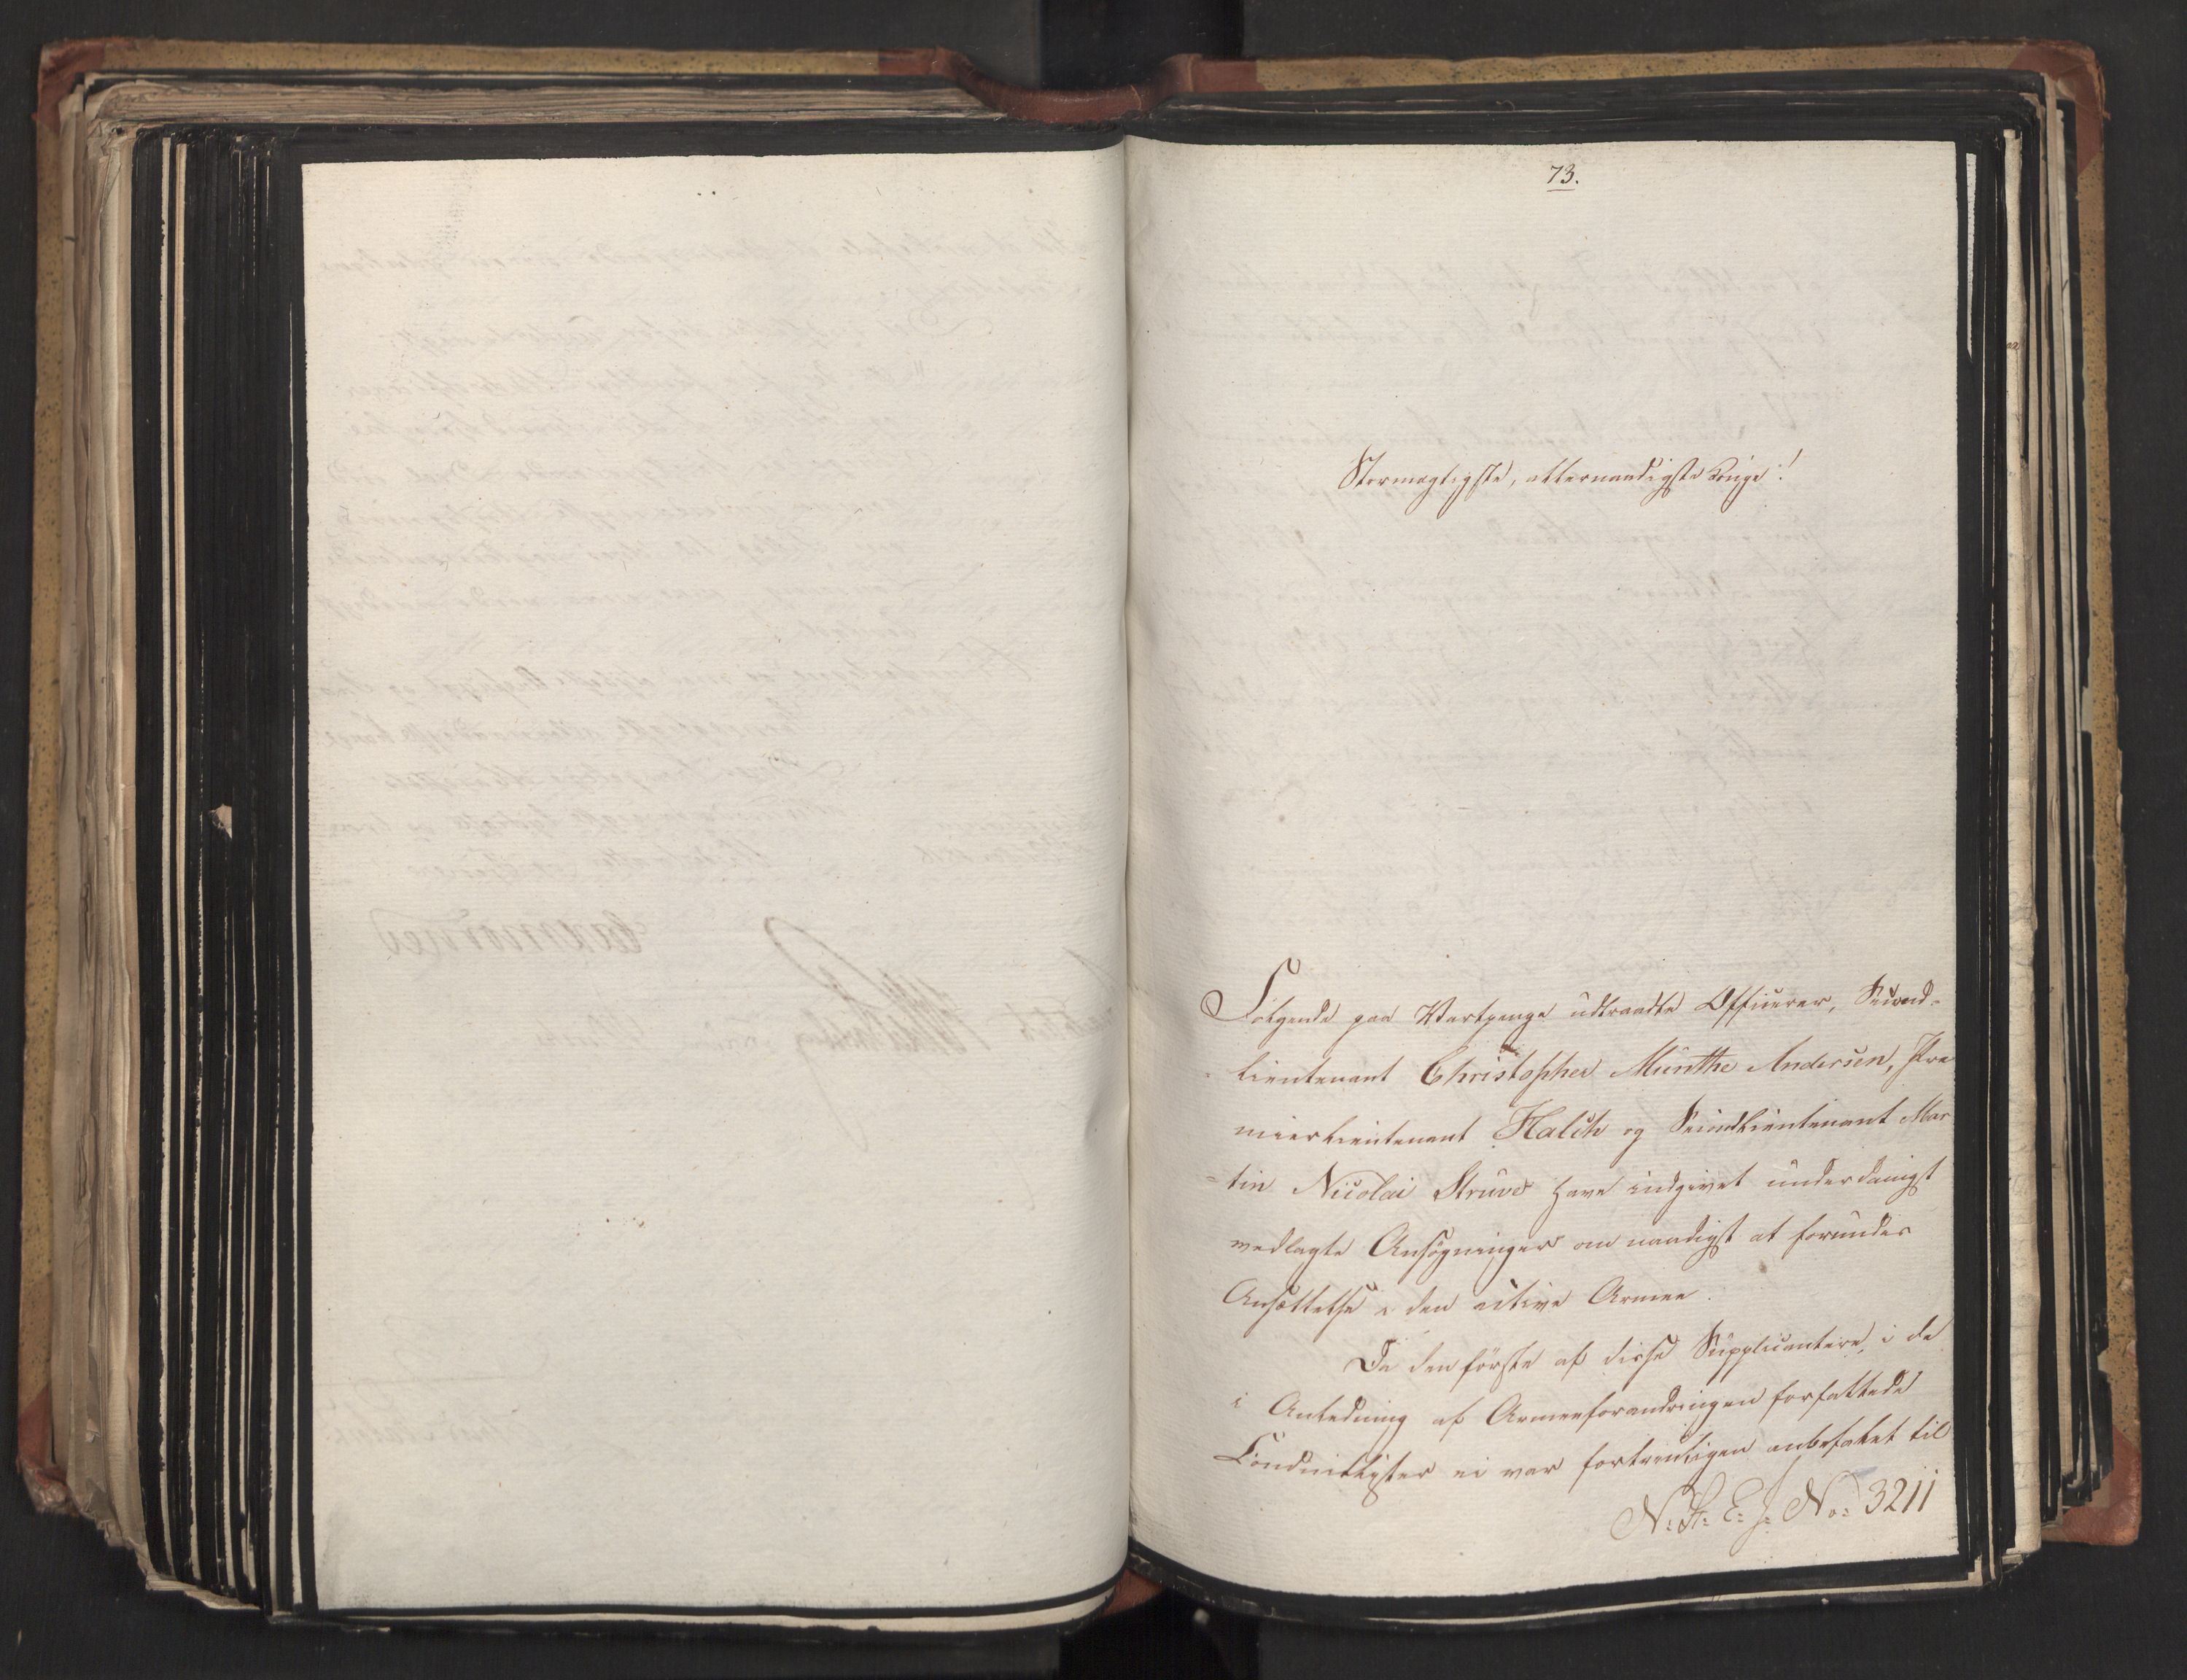 73.
Stormægtigste, allernaadigste Konge!
Følgende paa Vartpenge udtraadte Officerer, Second-
Lieutenant Christopher Münthe Andersen, Pre
mierlieutenant Kalch og Secondlieutenant Mar
=tin Nicolai Struve have indgivet underdanigst
vedlagte Ansøgninger om naadigst at forundes
Ansættelse i den active Armee.
Da den første af disse Supplicantere, i de
i Anledning af Armeeforandringen forfattede
Conduitelister ei var fortrinligen anbefalet til
N: St: E: J: No: 3211